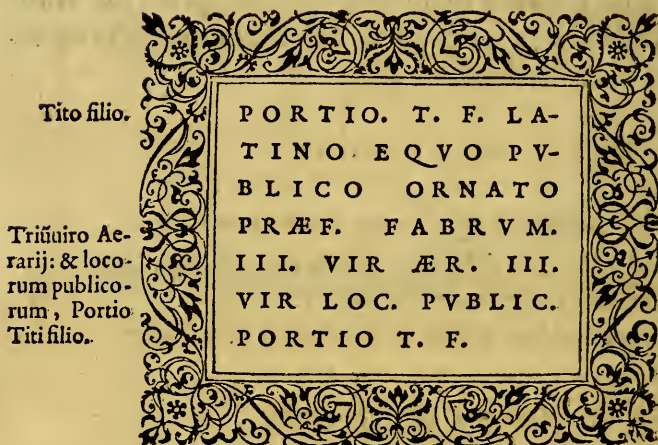 Tito filio.
Triũuiro Ae-
rarij: & loco-
rum publico-
rum, Portio
Titi filio.
PORTIO. T. F. LA-
TINO EQVO PV-
BLICO ORNATO
PRÆF. FABRVM.
III. VIR ÆR. III.
VIR LOC. PVBLIC.
PORTIO T. F.